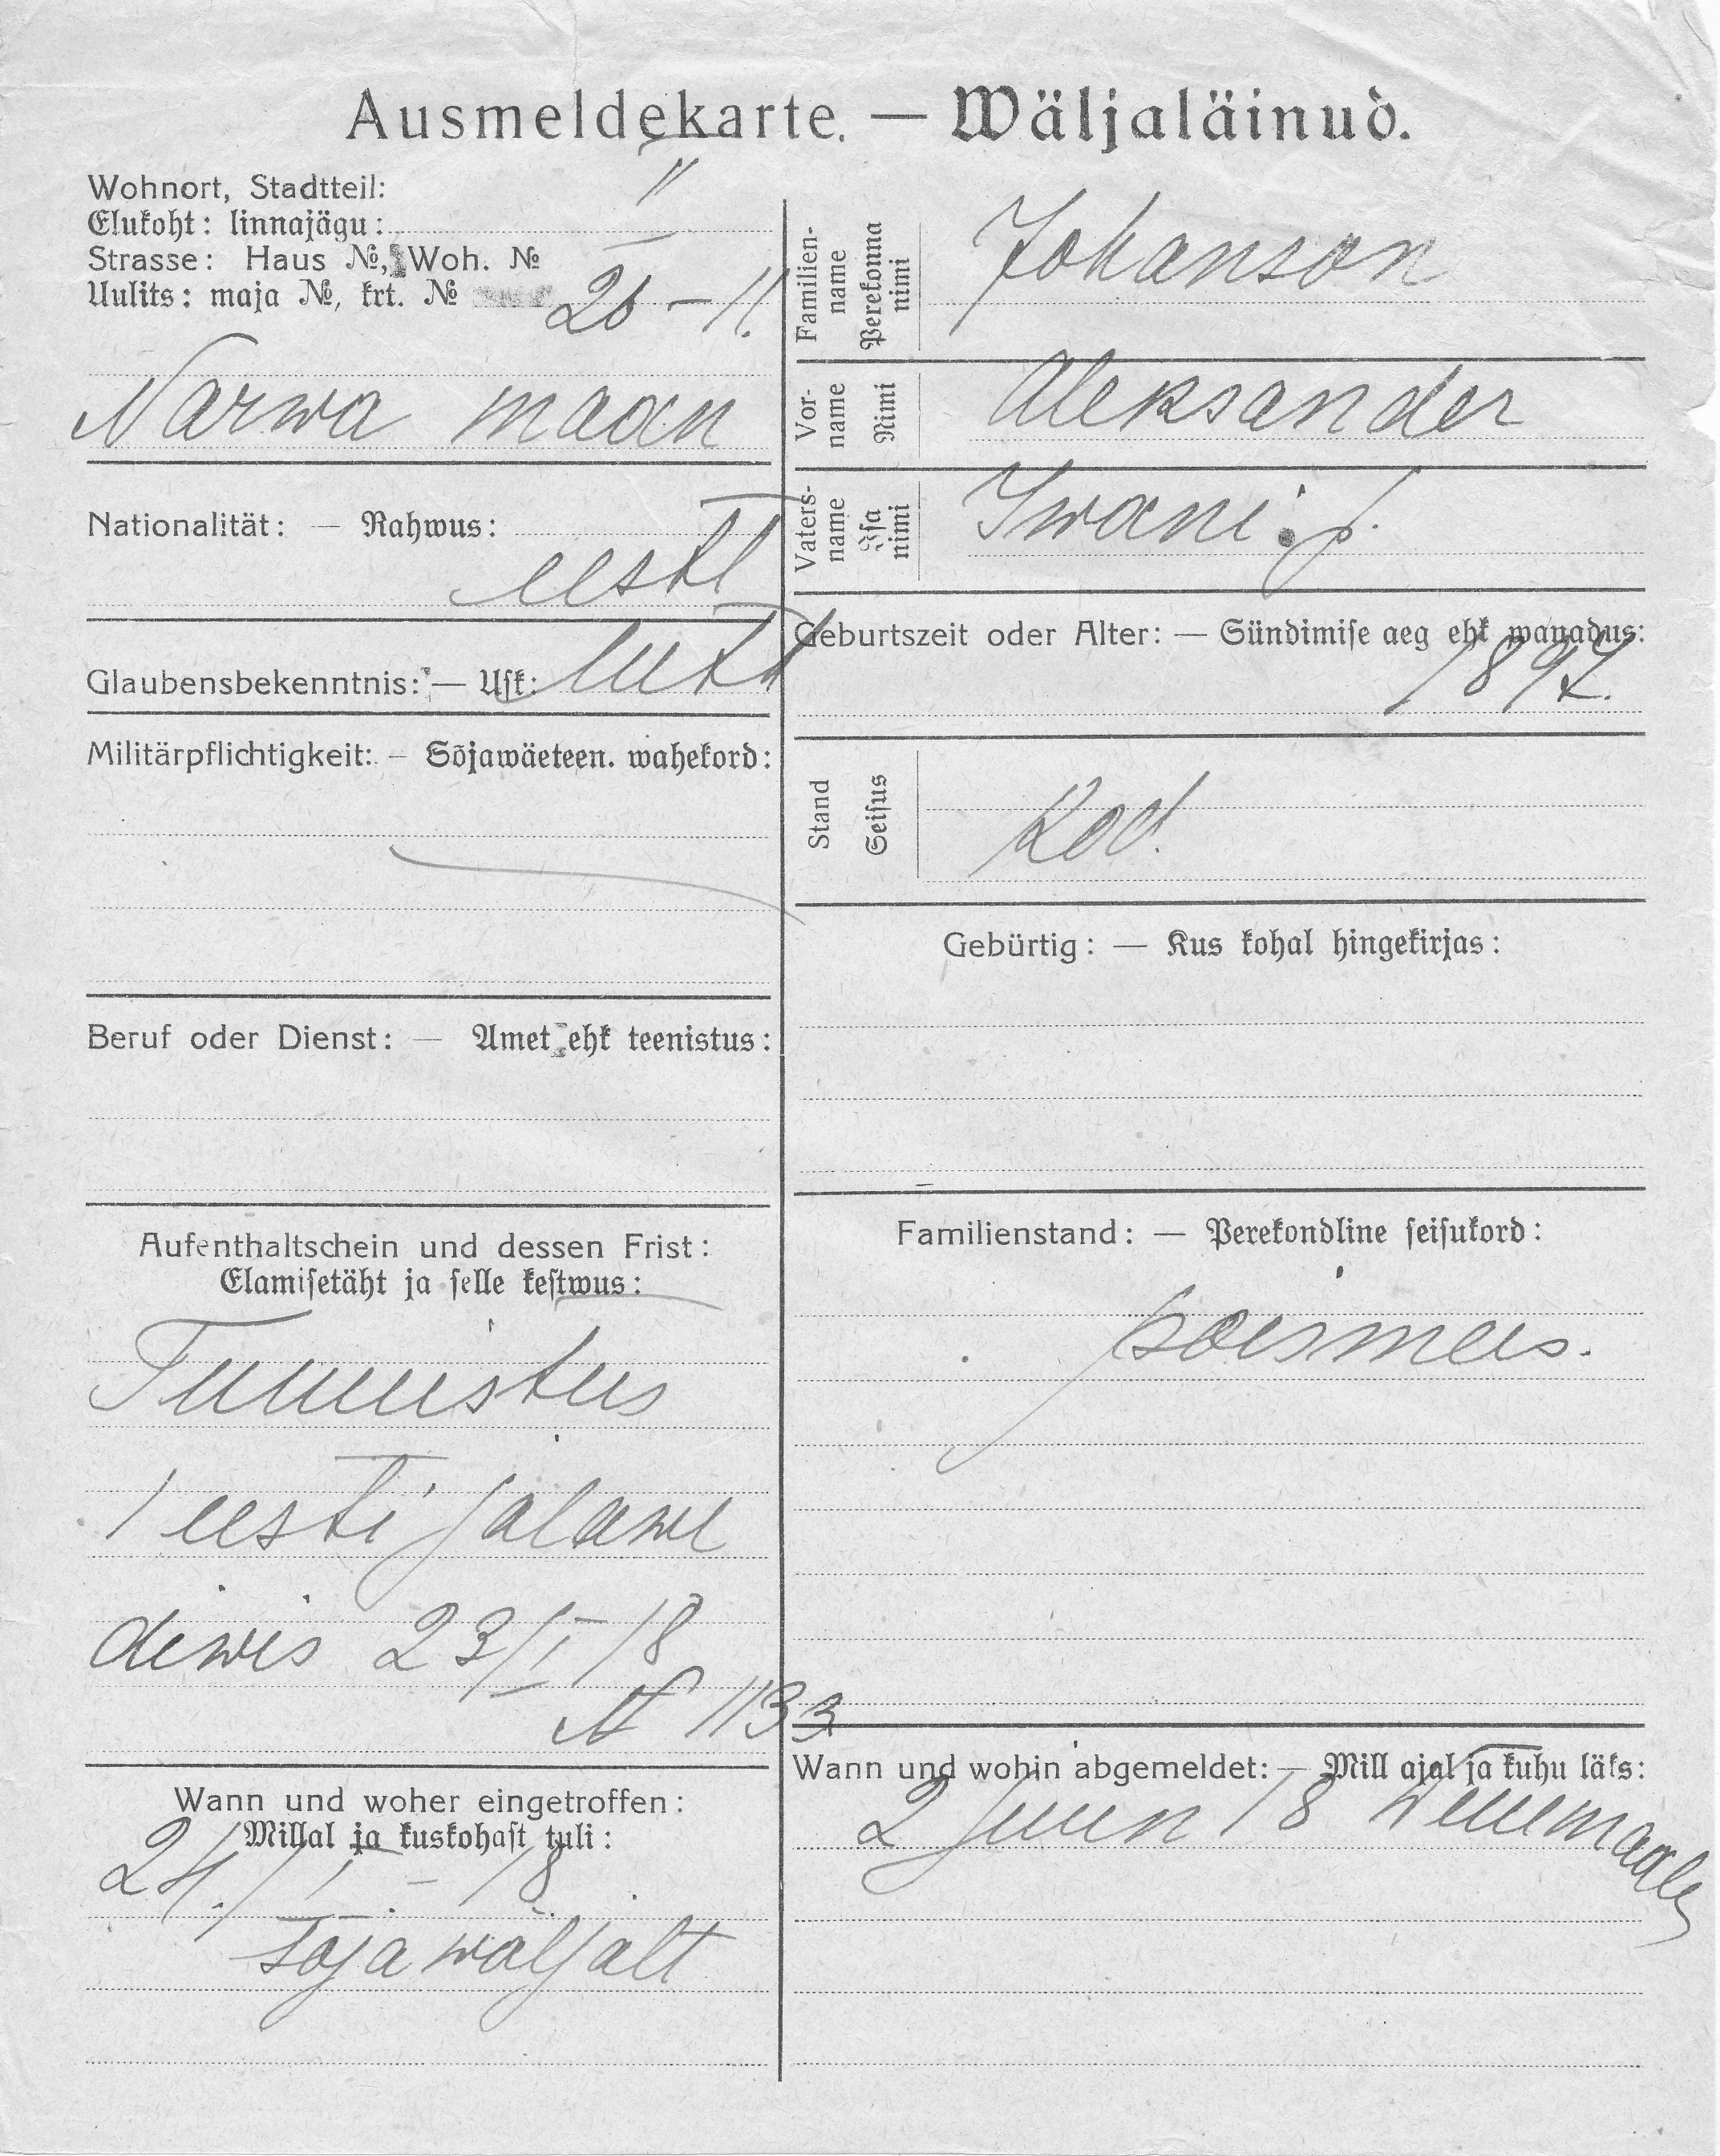 Ausmeldekarte. — Wäljaläinud.
Wohnort, Stadtteil:
Elukoht: linnajägu: II
Strasse: Haus №, Woh. №
Uulits: maja №, krt. № 26 – 11.
Narwa maan
Nationalität: — Rahwus:
eesti
Glaubensbekenntnis: — Usk: luth
Militärpflichtigkeit: — Sõjawäeteen. wahekord:
Beruf oder Dienst: — Amet ehk teenistus:
Aufenthaltschein und dessen Frist:
Elamisetäht ja selle kestwus:
Tunnistus
1 eesti jalawe
diwis 23/I 18
№ 1133
Wann und woher eingetroffen:
Millal ja kuskohast tuli:
24./I. – 18.
soja waljalt
Familien-name Perekonna nimi Johanson
Vor-name Nimi Aleksander
Vaters-name Isa nimi Iwani p.
Geburtszeit oder Alter: — Sündimise aeg ehk wanadus:
1897.
Stand Seisus Kod.
Gebürtig: — Kus kohal hingekirjas:
Familienstand: — Perekondline seisukord:
poismees.
Wann und wohin abgemeldet: — Mill ajal ja kuhu läks:
2 Juun 18 Wenemaale